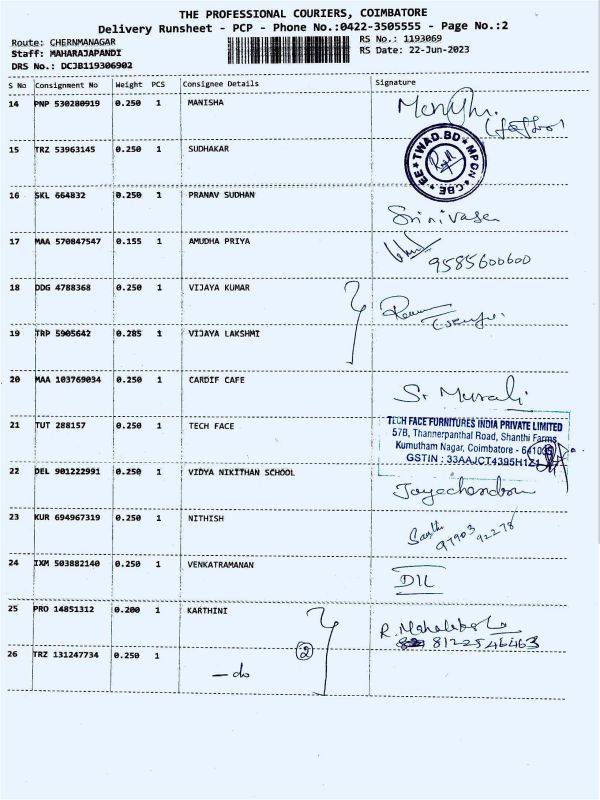 THE PROFESSIONAL COURIERS, COIMBATORE
Delivery Runsheet - PCP - Phone No.:0422-3505555 - Page No.:2
Route: CHERNMANAGAR
Staff: MAHARAJAPANDI
DRS No.: DCJB119306902
RS No.: 1193069
RS Date: 22-Jun-2023
S No Consignment No Weight PCS Consignee Details Signature
14 PNP 530280919 0.250 1 MANISHA
15 TRZ 53963145 0.250 1 SUDHAKAR
EE ★ TWAD.BD ★ MPDN ★ CBE ★
16 SKL 664832 0.250 1 PRANAV SUDHAN
Srinivasan
17 MAA 570847547 0.155 1 AMUDHA PRIYA
9585600600
18 DDG 4788368 0.250 1 VIJAYA KUMAR
19 TRP 5905642 0.285 1 VIJAYA LAKSHMI
20 MAA 103769034 0.250 1 CARDIF CAFE
S. Murali
21 TUT 288157 0.250 1 TECH FACE
TECH FACE FURNITURES INDIA PRIVATE LIMITED
57B, Thannerpanthal Road, Shanthi Farms,
Kumutham Nagar, Coimbatore - 641035
GSTIN : 33AAJCT4395H1Z1
22 DEL 901222991 0.250 1 VIDYA NIKITHAN SCHOOL
Jayachandran
23 KUR 694967319 0.250 1 NITHISH
97903 92278
24 IXM 503882140 0.250 1 VENKATRAMANAN
DIL
25 PRO 14851312 0.200 1 KARTHINI
8122546463
26 TRZ 131247734 0.250 1
- do
2